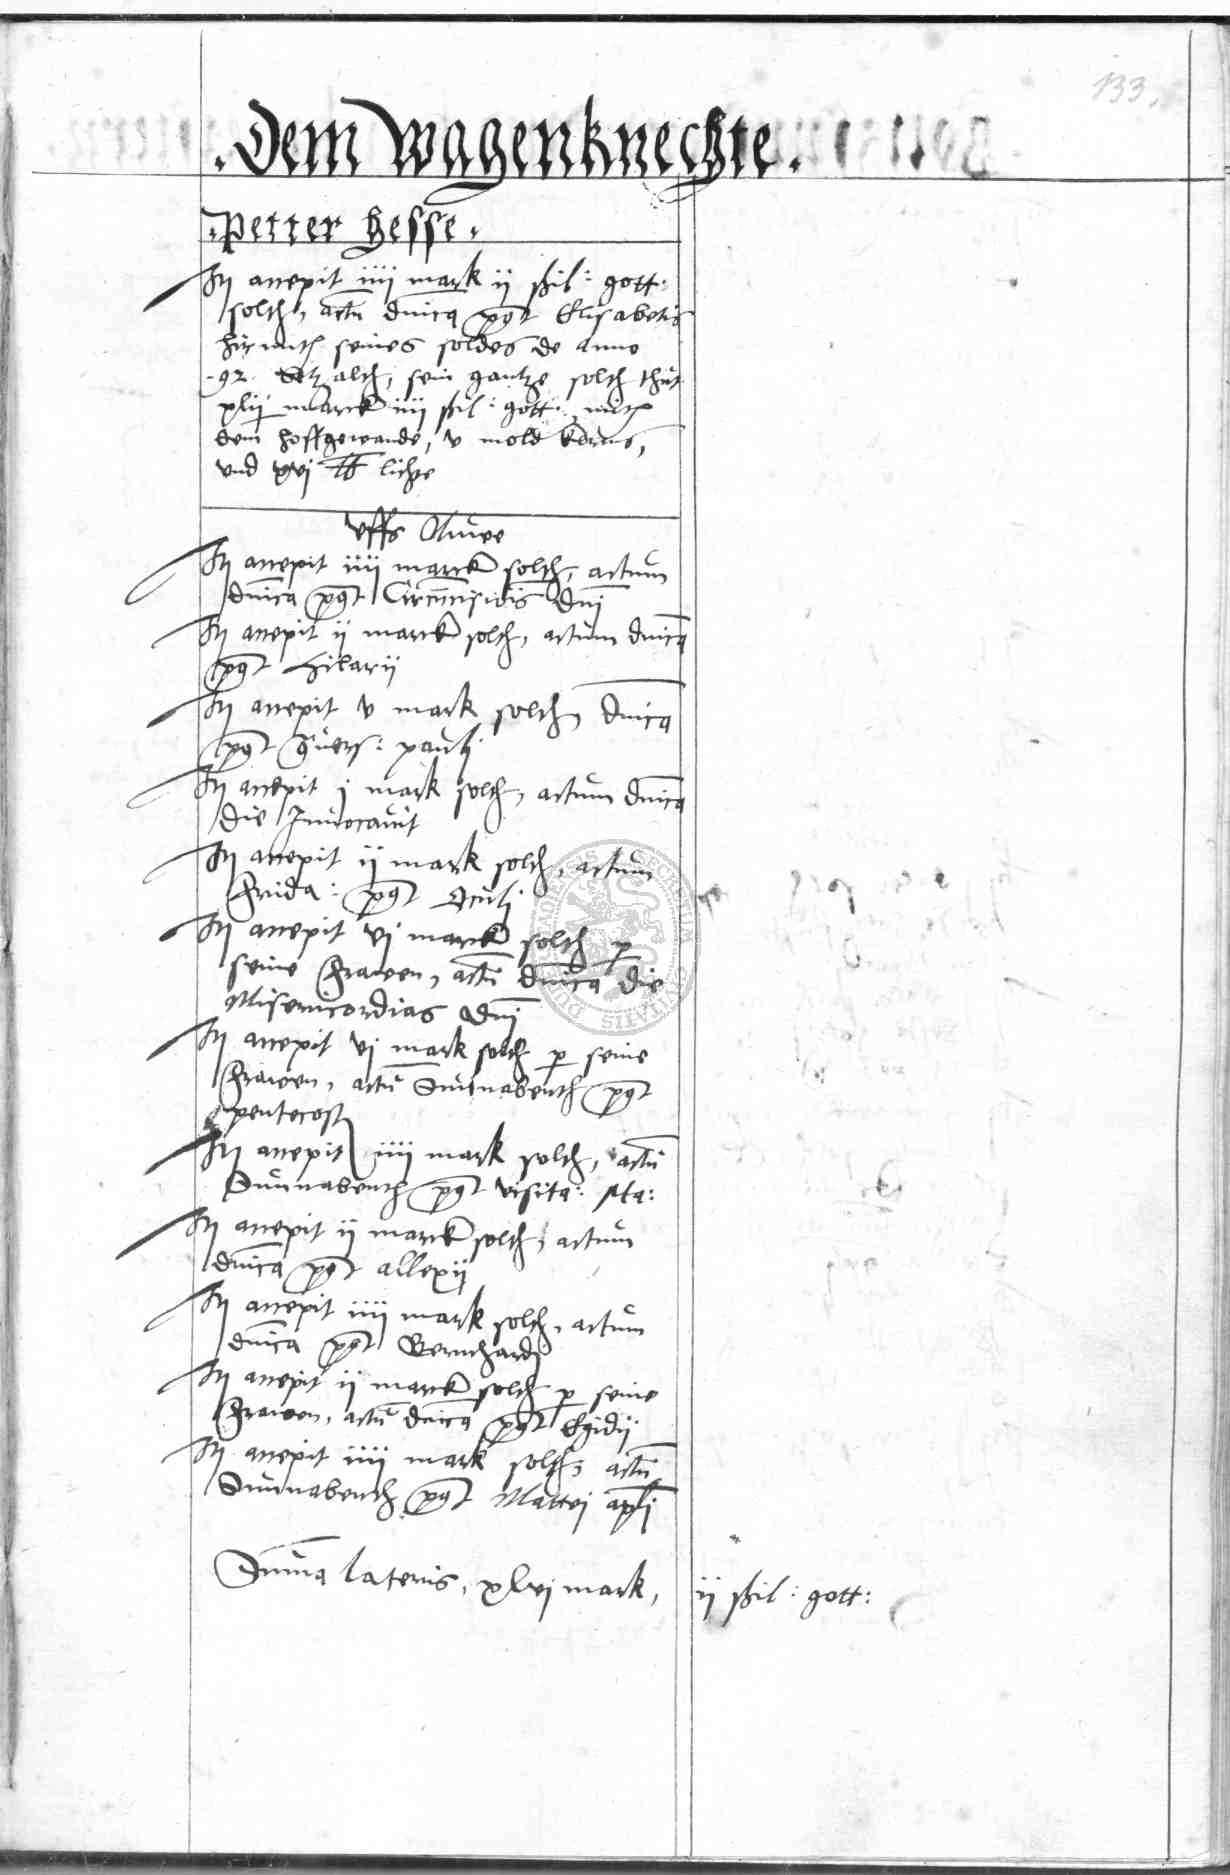 133.
. Dem Wagenknechte .
. Petter Hesse .
It accepit iiij mark ij ßil: gott:
solth, actu dnica pqt Elisabetis
hir mith seines soldes de anno
.92. betzalth, sein gantze solth thut
xlij marck iiij ßil: gott: mith
dem hoffgewande, v mold korns,
vnd xvj lb lichte
vffs Nuwe
It accepit iiij marck solth, actum
dnica pqt Circumcisiois Dni
It accepit ij marck solth, actum dnica
pqt Hilarij
It accepit v mark solth, dnica
pqt 9vers: pauli
It accepit j mark solth, actum dnica
die Invocavit
It accepit ij mark solth, actum
Frida: pqt Oculj
It accepit vj marck solth p
seine Frawen, actu dnica die
Misericordias Dni
It accepit vj mark solth p seine
Frawen, actu Sunnabenth pqt
pentecost
It accepit iiij mark solth, actu
Sunnabenth pqt visita: Ma:
It accepit ij marck solth, actum
dnica pqt allexij
It accepit iiij mark solth, actum
dnica pqt Bernhardj
It accepit ij marck solth p seine
Frawen, actu dnica pqt Egidij
It accepit iiij mark solth, actu
Sunnabenth pqt Mattej aplj
Suma lateris, xlvj mark, ij ßil: gott: